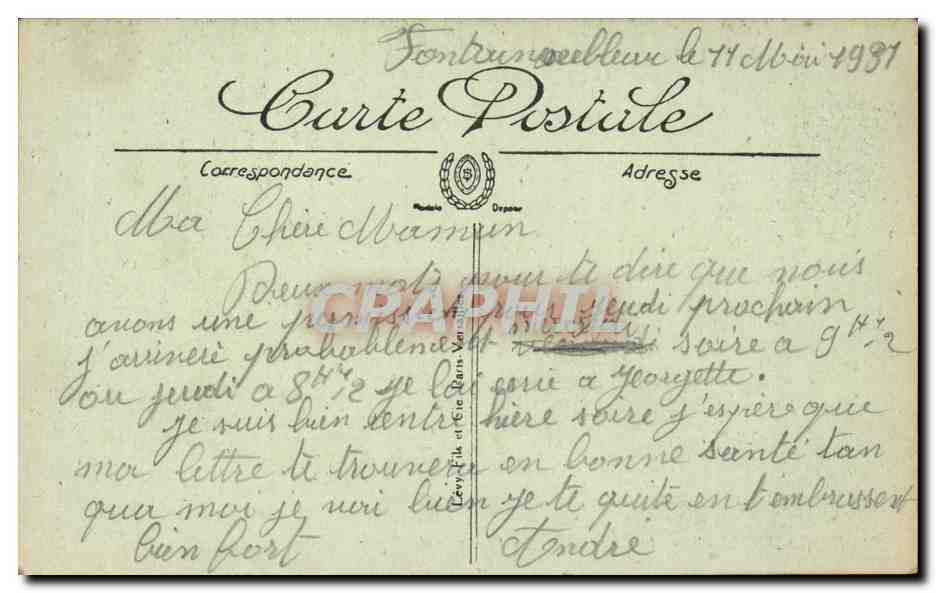 Fontainebleau le 11 Mai 1931
Carte Postale
Correspondance
Adresse
Modèle Déposé
Ma Chère Maman
Deux mots pour te dire que nous
avons une permission jeudi prochain
j'arriveré probablement soire a 9 H 1/2
ou jeudi a 8 H 1/2 je l'ai a Jeorgette.
je suis bien entré hière soire j'espère que
ma lettre te trouvera en bonne santé tan
qua moi je vai bien je te quite en t'embrassent
bien fort André
Lévy Fils et Cie Paris-Versailles
CPAPHIL